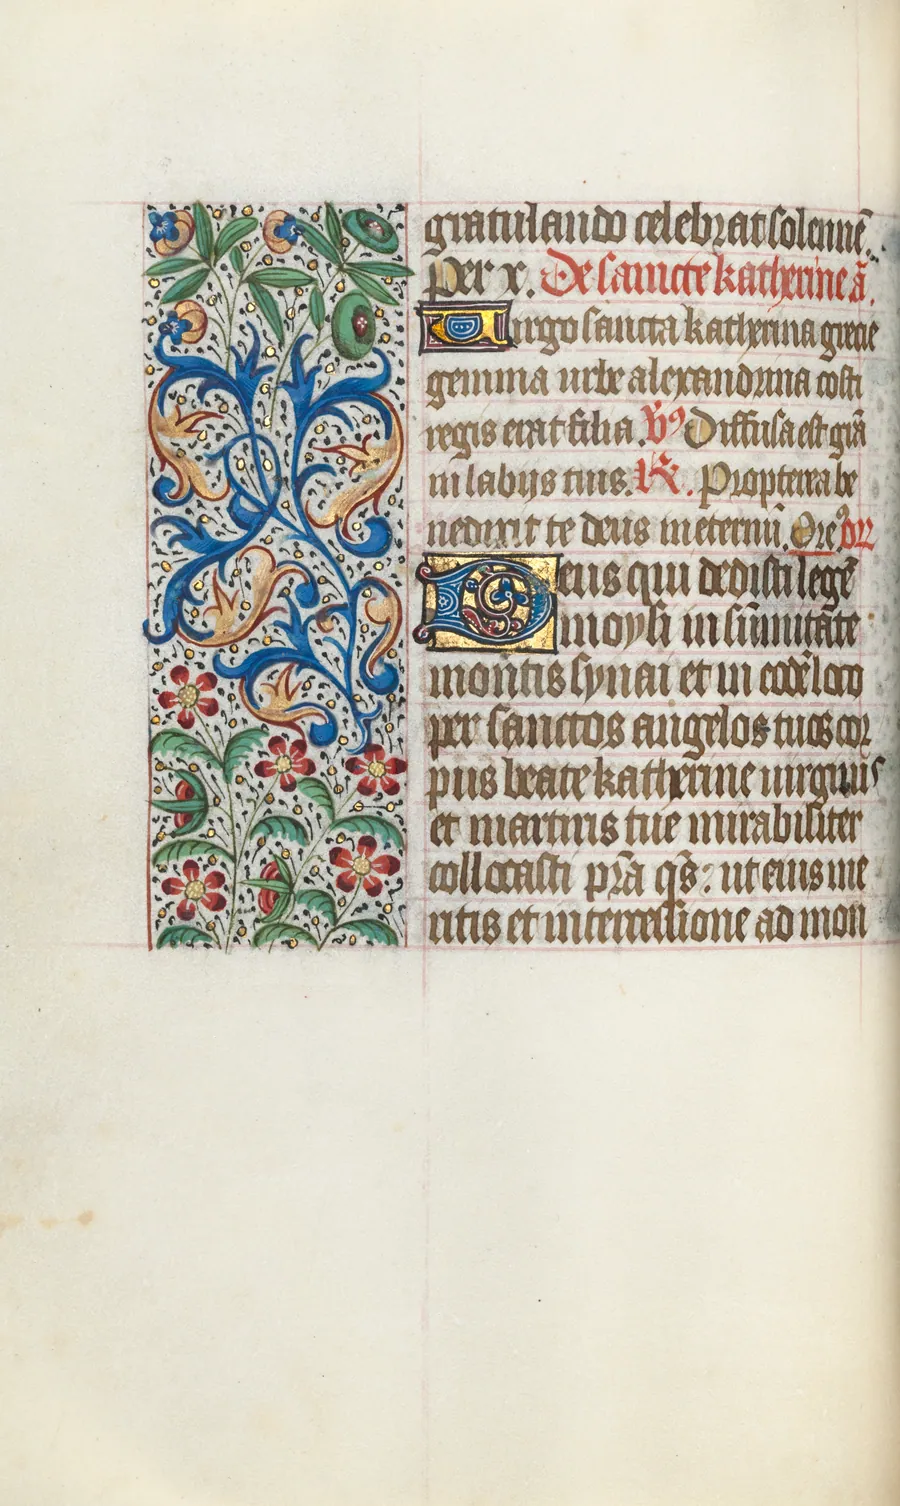 gratulando celebrat solennẽ.
Per x. De sancte katherine ã.
Uirgo sancta katherina grecie
gemma urbe alexandrina costi
regis erat filia. V9 Diffusa est grã
in labijs tuis. R. Propterea be
nedixit te deus in eternũ. Ore9
Deus qui dedisti legẽ
moysi in sũmitate
montis synai et in eodẽ loco
per sanctos angelos tuos cor
pus beate katherine uirginis
et martiris tue mirabiliter
collocasti pr̃a q̃s: ut eius me
ritis et intercessione ad mon